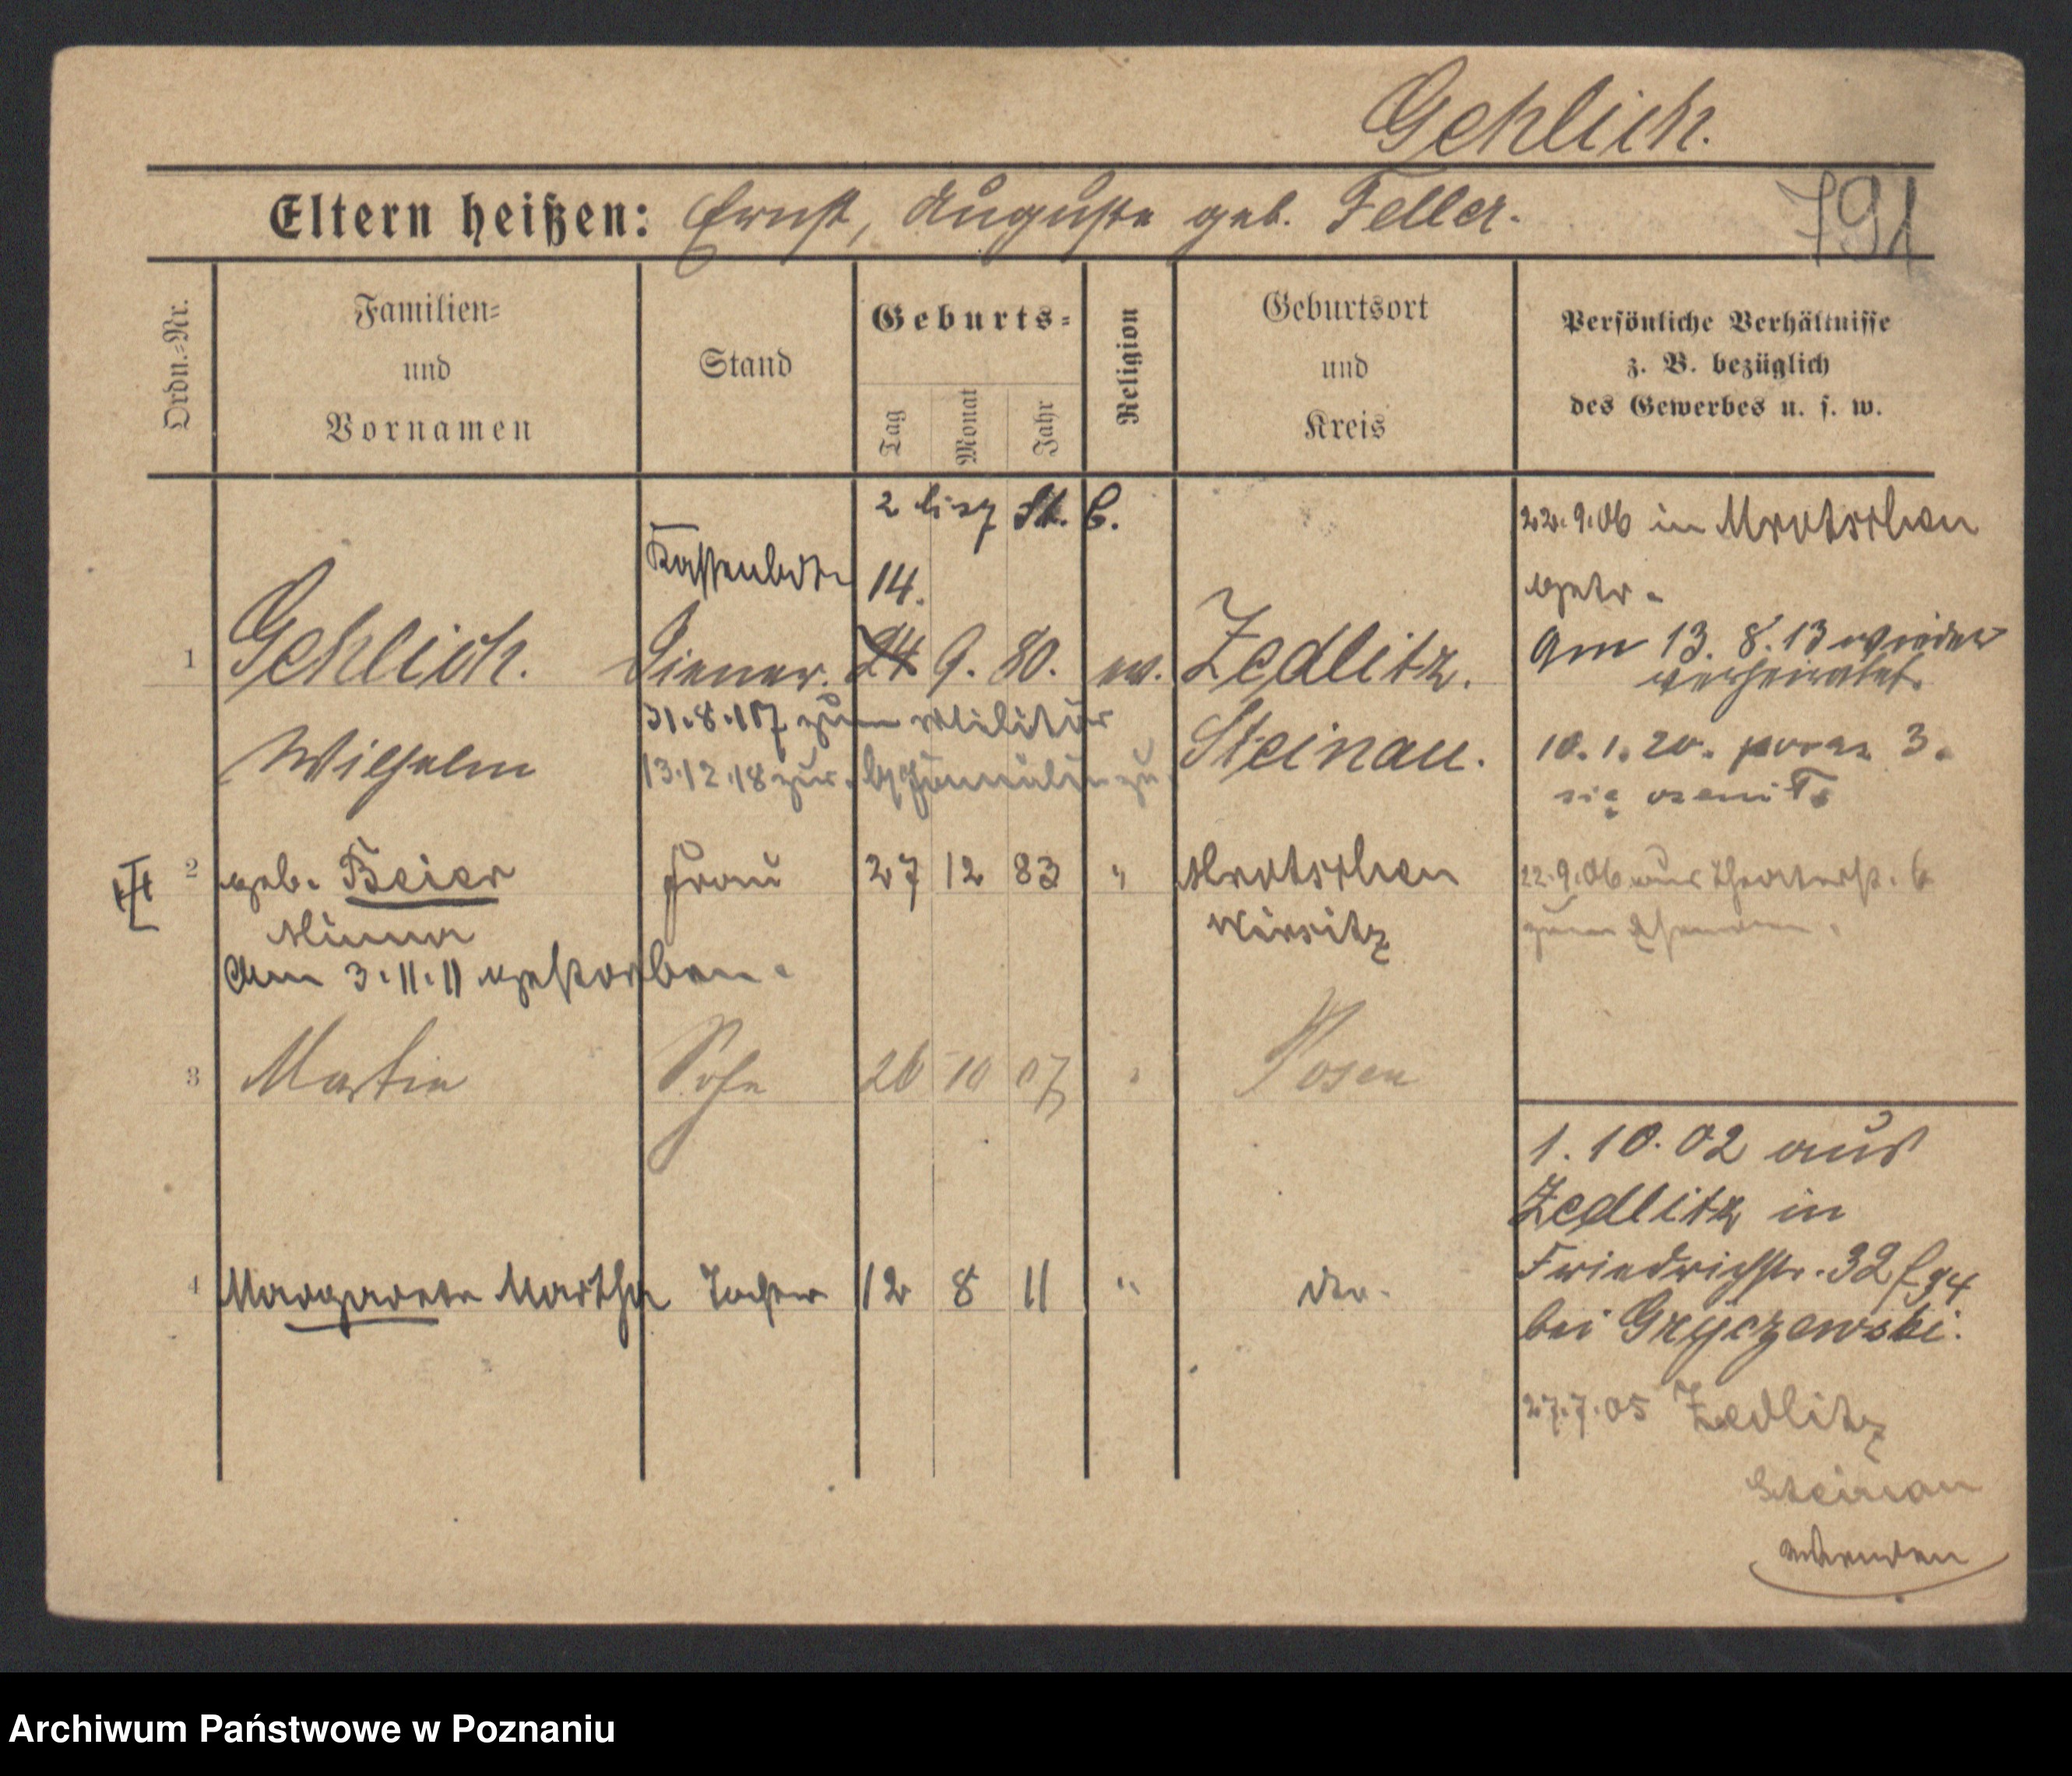 Gehlich.
Eltern heißen: Ernst, Auguste geb. Feller.
791
Ordn.=Nr.
Familien=
und
Vornamen
Stand
Geburts=
Tag
Monat
Jahr
Religion
Geburtsort
und
Kreis
Persönliche Verhältnisse
z. B. bezüglich
des Gewerbes u. s. w.
2 lisz St. B.
22.9.06 in Mrotschen
Kassenbote 14.
getr.
1 Gehlich. Diener. 24 9. 80. ev. Zedlitz.
Am 13.8.13 wieder
verheiratet.
31.8.17 zum Militär
Wilhelm
13.12.18 zur.
Steinau.
10.1.20. poraz 3.
się ożenił
II
2 geb. Beier Frau 27 12 83 " Mrotschen
22.9.06 aus Theaterstr. 6
Minna
Wirsitz
zum Ehemann.
Am 3.11.11 gestorben.
3 Martin Sohn 26 10 07 " Posen
1.10.02 aus
Zedlitz in
4 Margarete Martha Tochter 12 8 11 " do.
Friedrichstr. 32
bei Gryczewski.
27.7.05 Zedlitz
Steinau
wenden
Archiwum Państwowe w Poznaniu